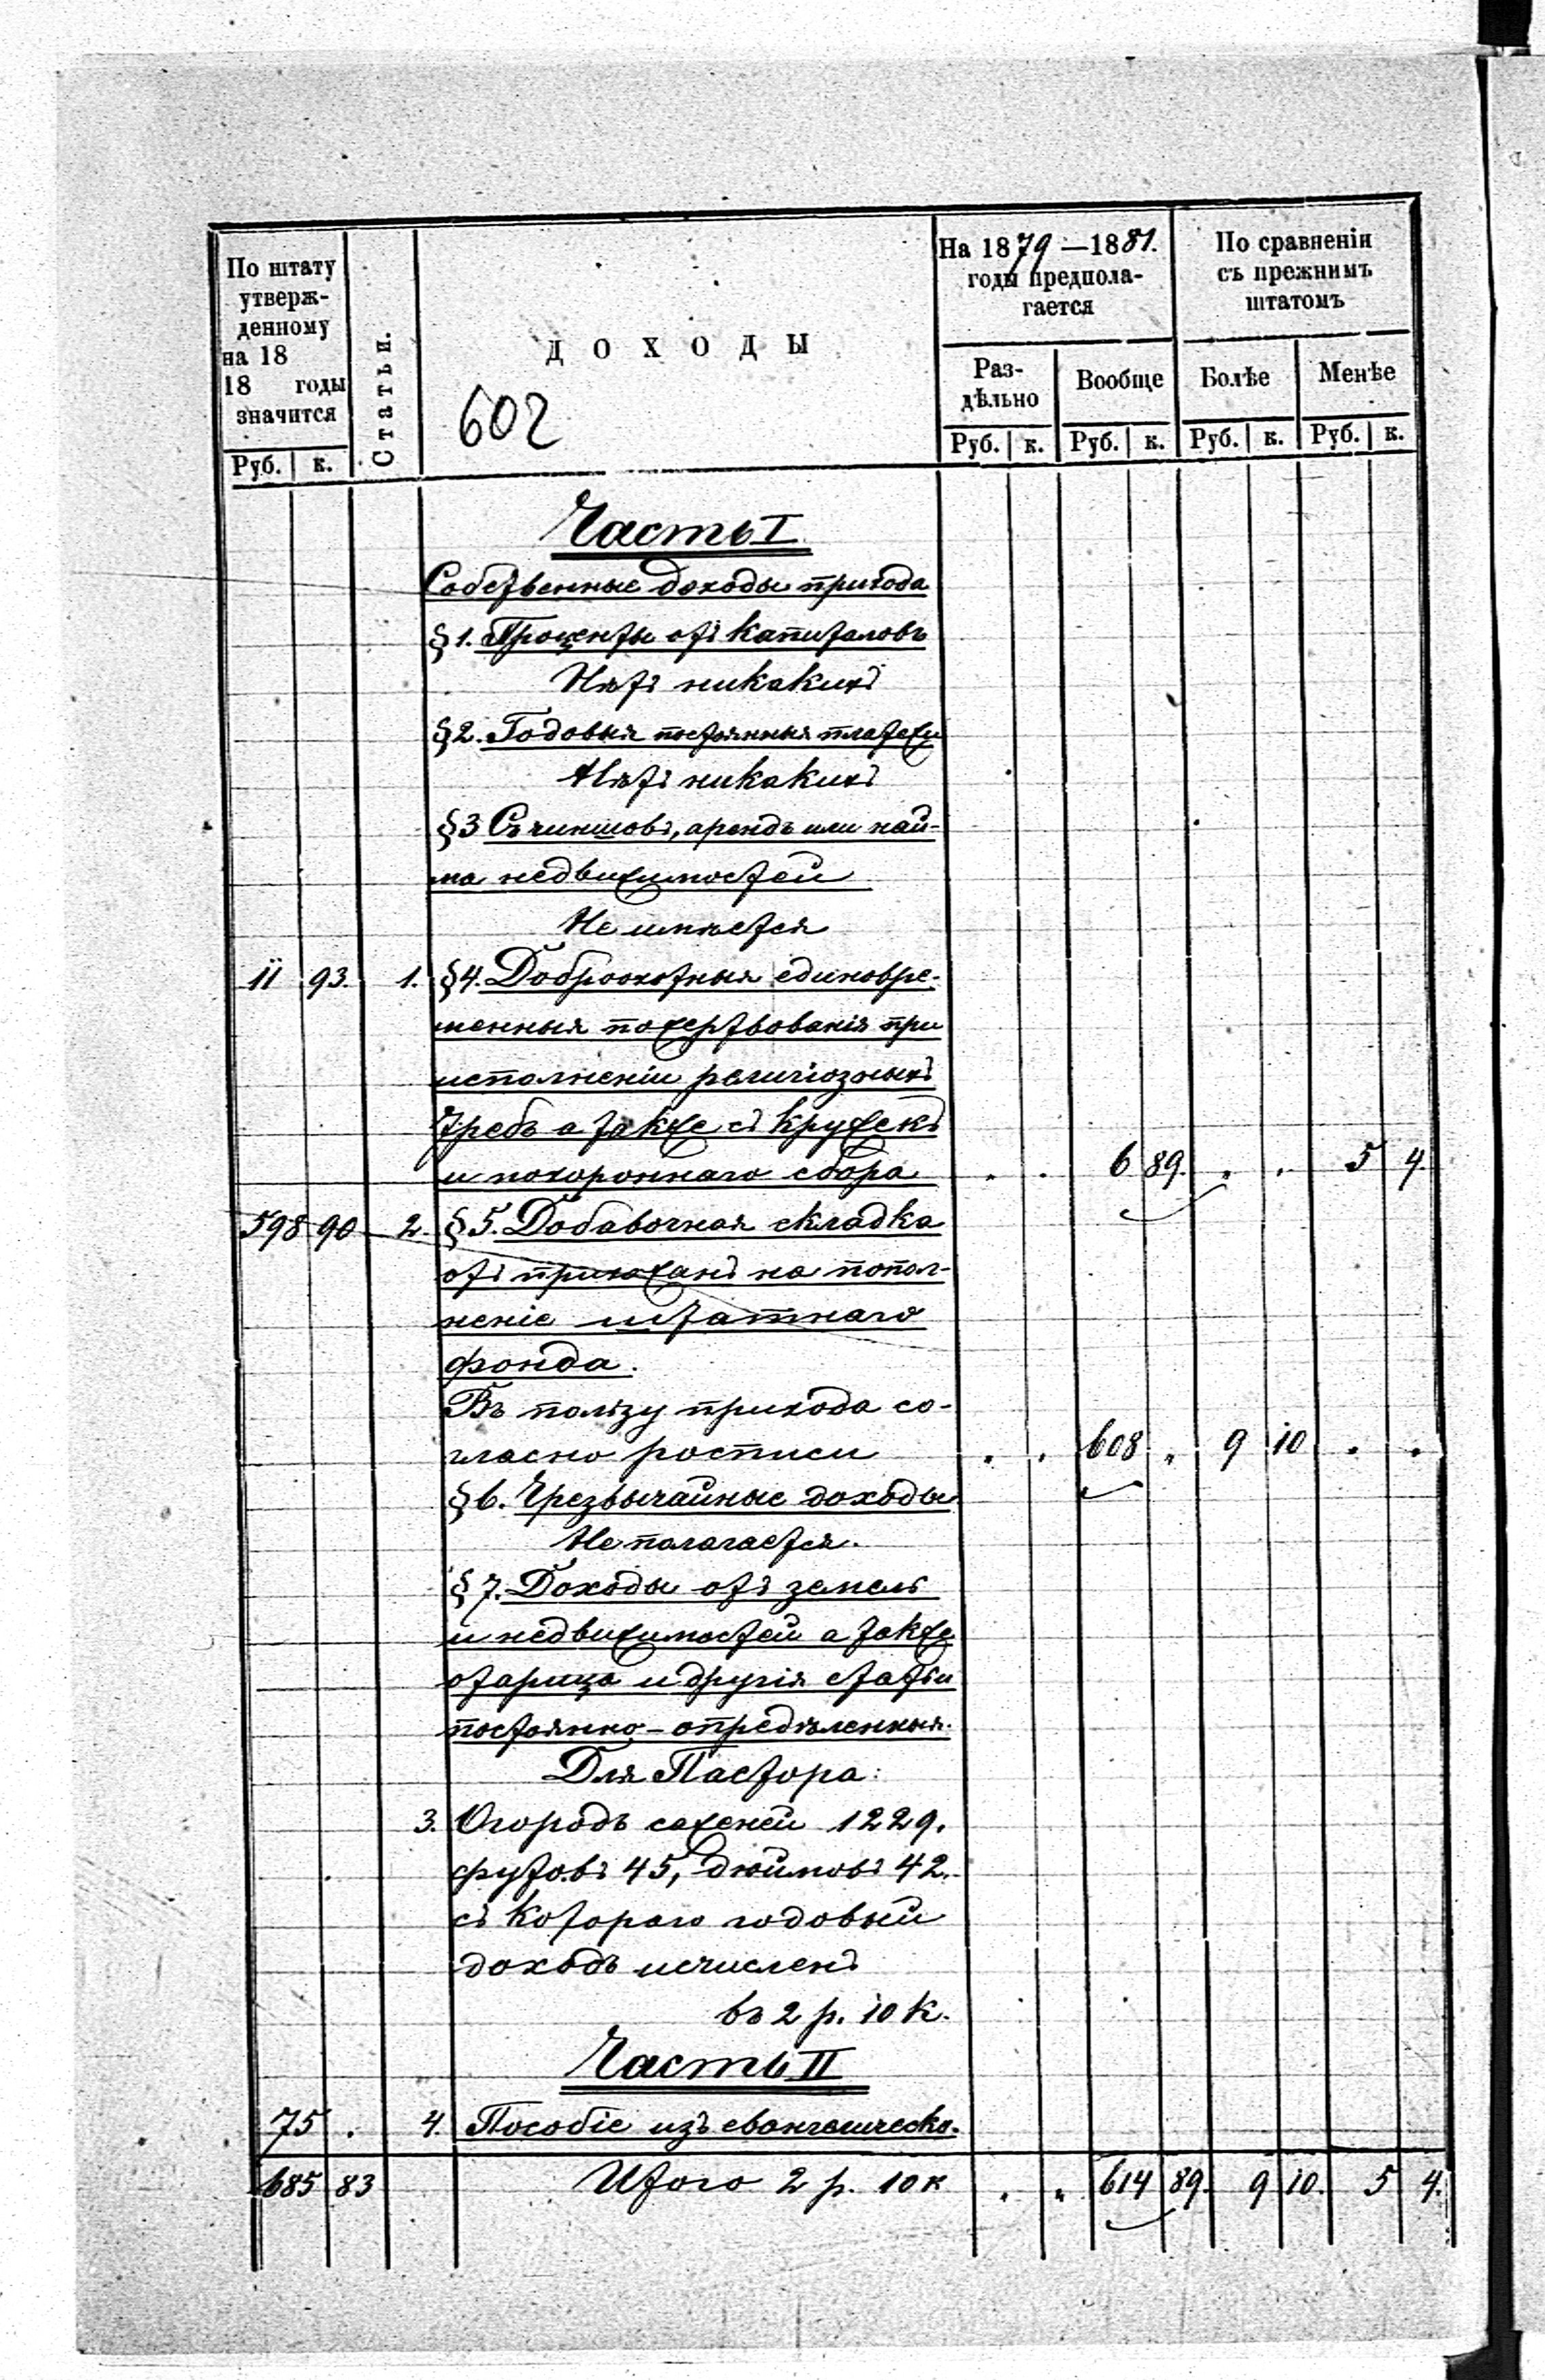 По штату
утверж-
денному
на 18
18 годы
значится
Руб. к.
Статьи.
ДОХОДЫ
602
На 1879 — 1881.
годы предпола-
гается
Раз-
дѣльно
Вообще
Руб. к. Руб. к.
По сравненіи
съ прежнимъ
штатомъ
Болѣе Менѣе
Руб. к. Руб. к.
Часть I
Собственные доходы прихода
§ 1. Проценты отъ капиталовъ
Нѣтъ никакихъ
§ 2. Годовыя постоянныя платежи
Нѣтъ никакихъ
§ 3 Съ чиншовъ, арендъ или най-
ма недвижимостей
Не имѣется
11 93. 1. § 4. Доброохотныя единовре-
менныя пожертвованія при
исполненіи религіозныхъ
требъ а также съ кружекъ
и похороннаго сбора . . 6 89. . . 5 4.
598 90 2. § 5. Добавочная складка
отъ прихожанъ на попол-
неніе штатнаго
фонда.
Въ пользу прихода со-
гласно росписи . . 608 „ 9 10 . .
§ 6. Чрезвычайные доходы
Не полагается.
§ 7. Доходы отъ земель
и недвижимостей а также
отарица и другія статьи
постоянно-опредѣленныя.
Для Пастора:
3. Огородъ саженей 1229.
футовъ 45, дюймовъ 42.
съ котораго годовый
доходъ исчисленъ
въ 2 р. 10 к.
Часть II
75 . 4. Пособіе изъ евангелическо-
685 83 Итого 2 р. 10 к . „ 614 89. 9 10. 5 4.